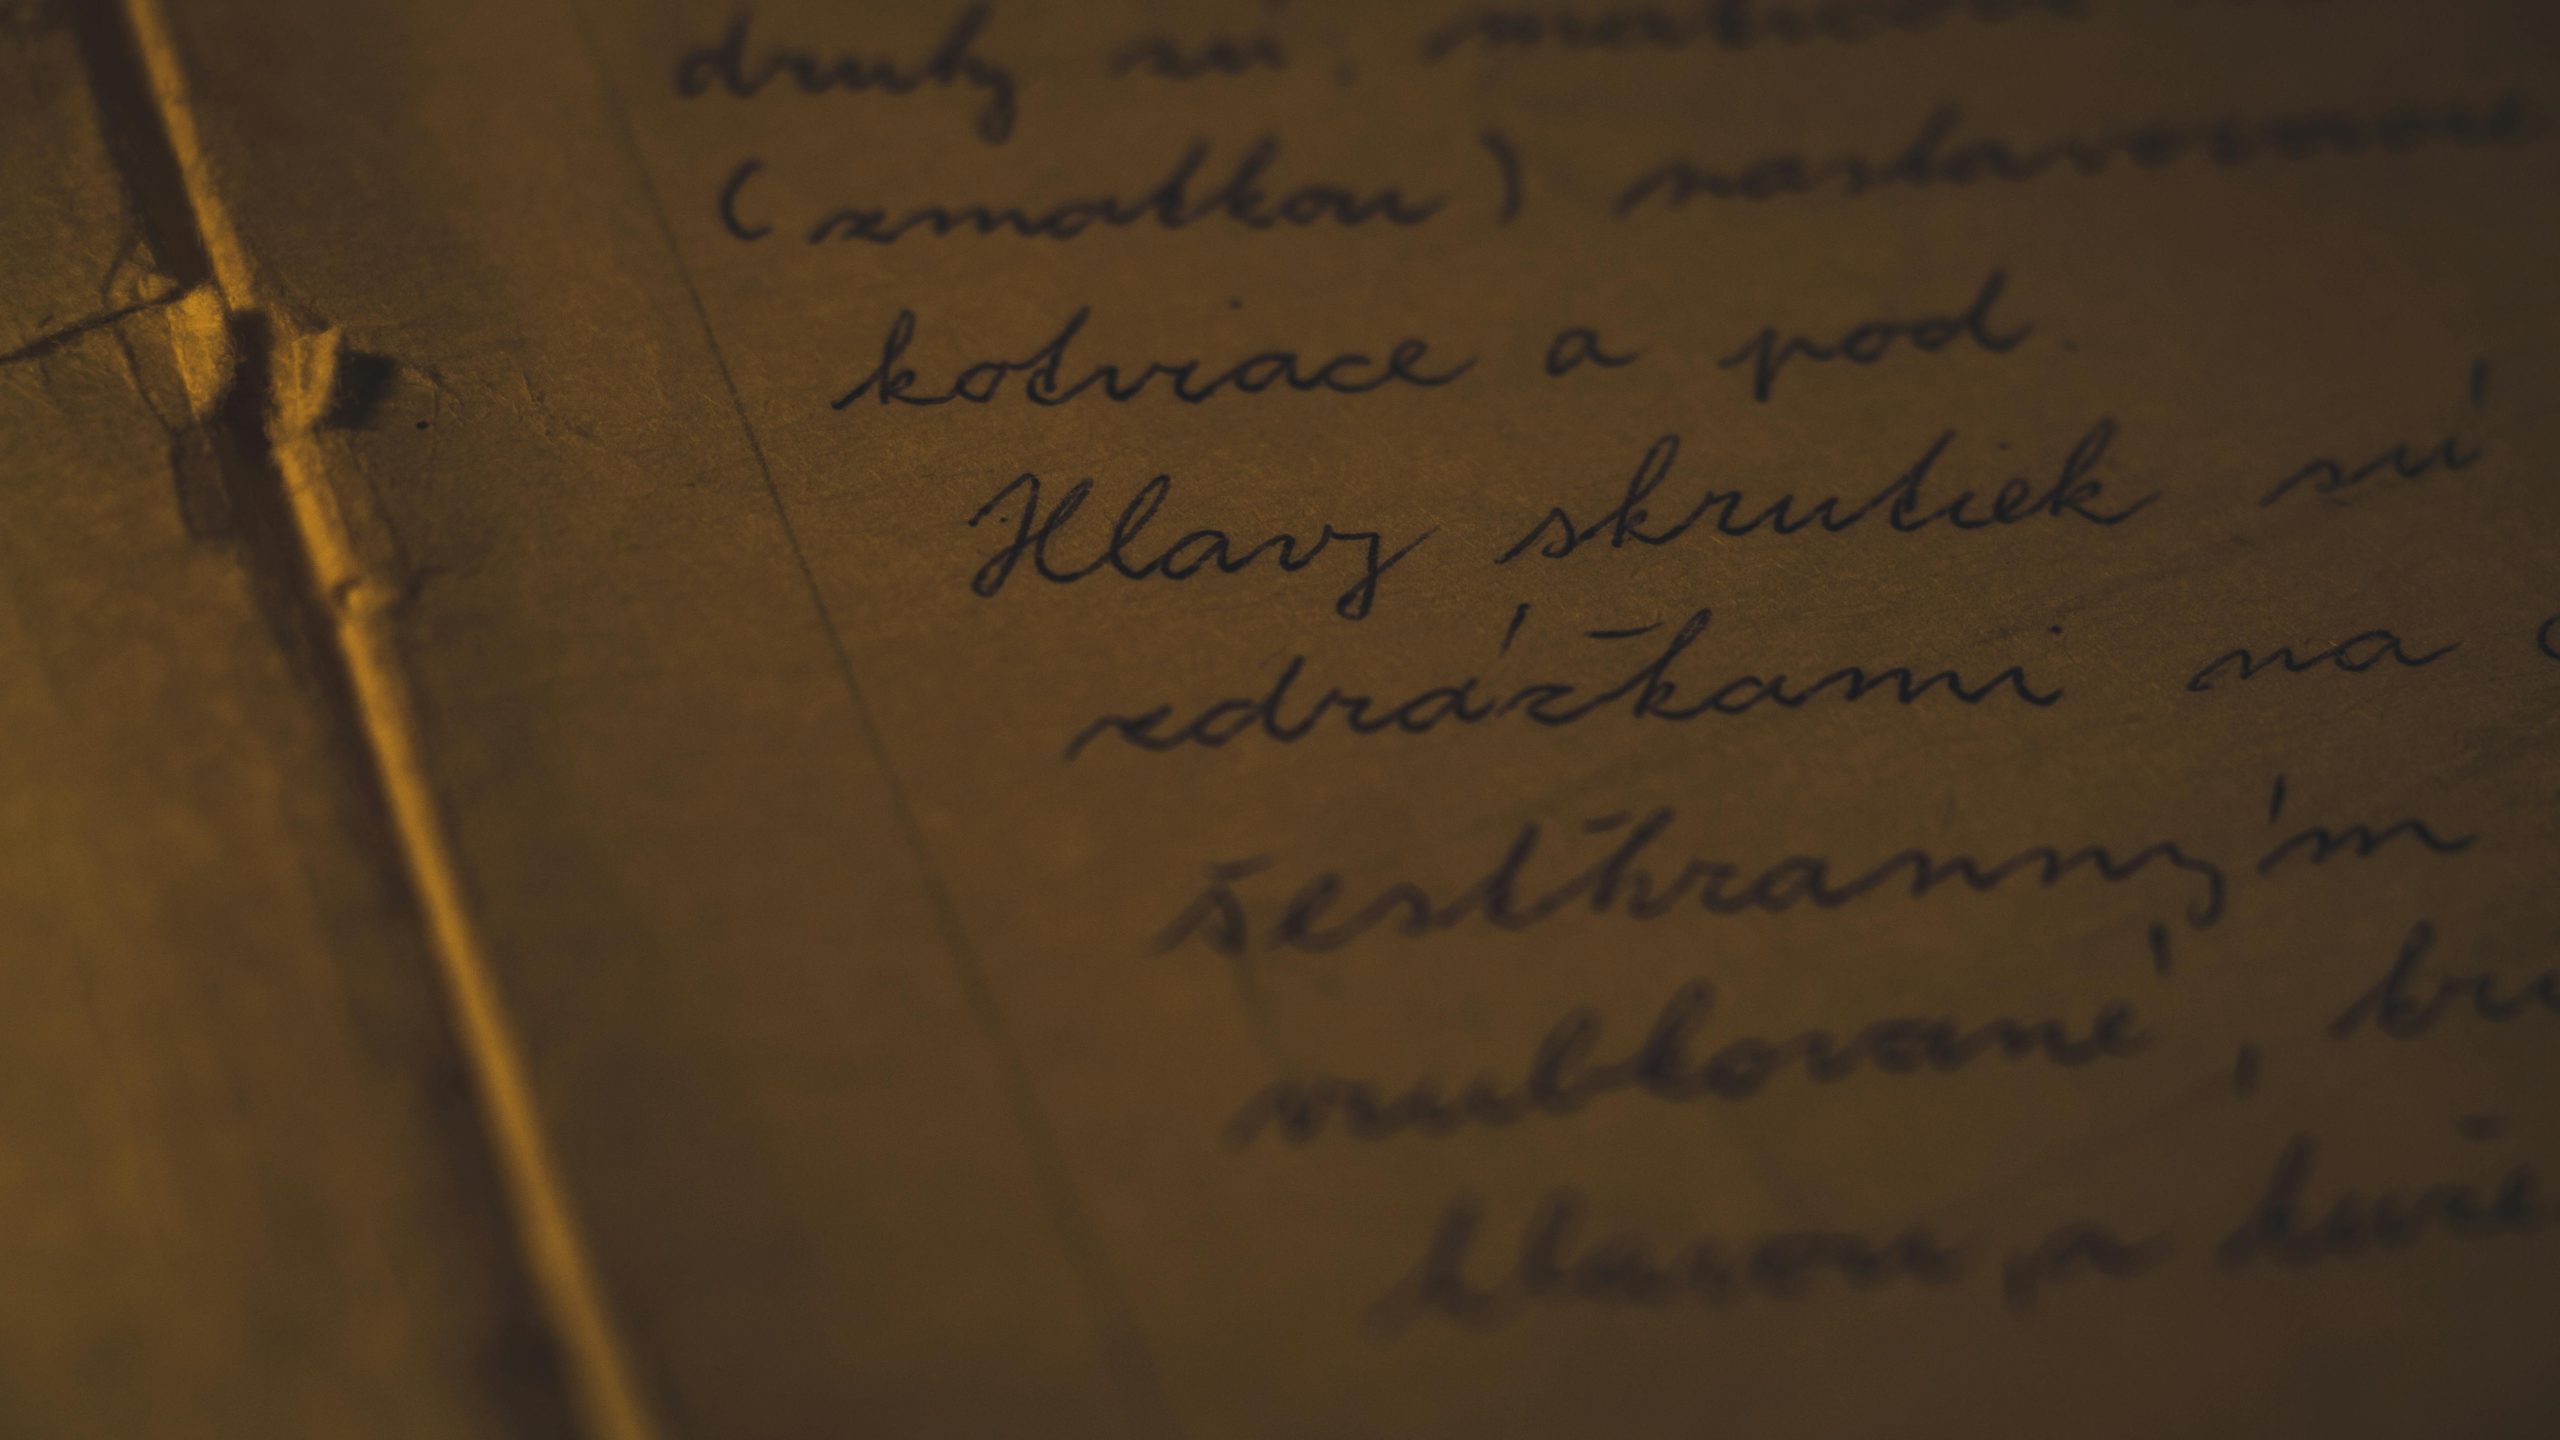 druhy sú,
(zmatkou) nastavované
kotviace a pod.
Hlavy skrutiek sú
zdrážkami na
šesťhranným
vrubkované,
hlavou